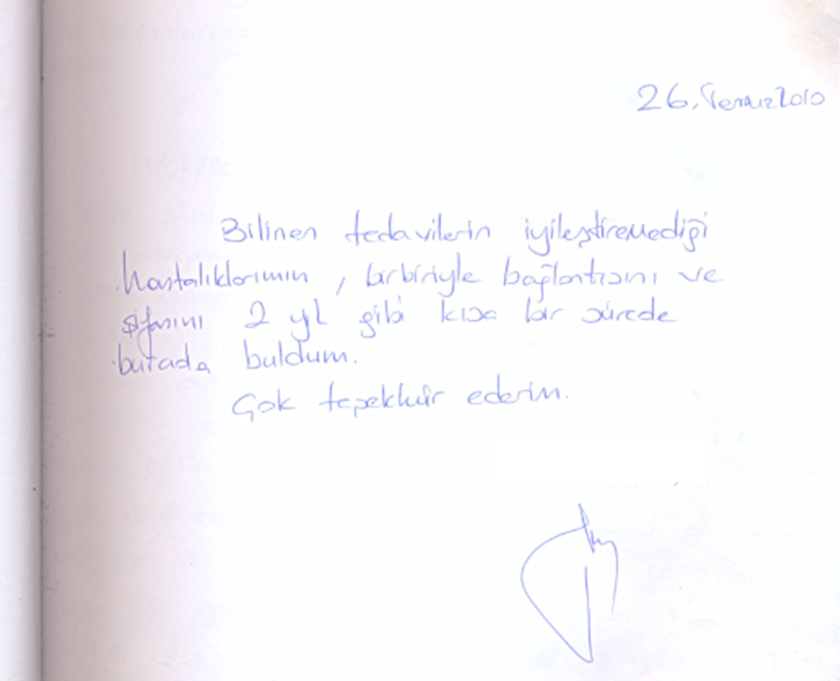 26. Temmuz 2010
Bilinen tedavilerin iyileştiremediği
hastalıklarımın, birbiriyle bağlantısını ve
şifasını 2 yıl gibi kısa bir sürede
burada buldum.
Çok teşekkür ederim.